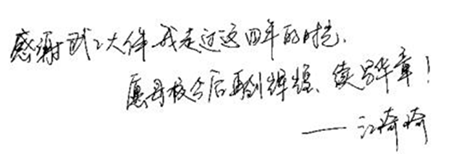 感谢武工大伴我走过这四年的时光,
愿母校今后再创辉煌、续写华章!
——江琦琦